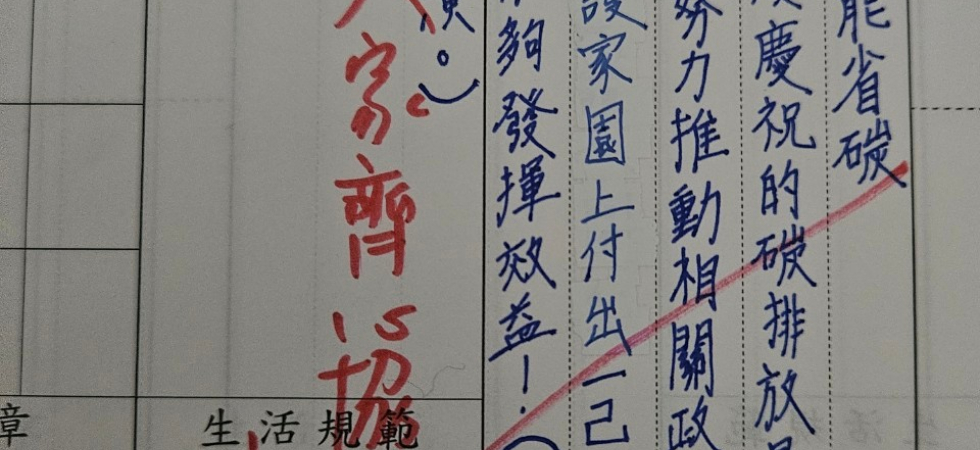 能省碳
慶祝的碳排放
努力推動相關政
設家園上付出一己
夠發揮效益！
大家齊協
生活規範
章